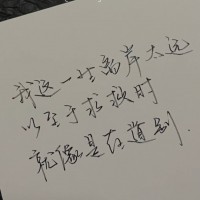 我这一生离岸太远
以至于求救时
就像是在道别.